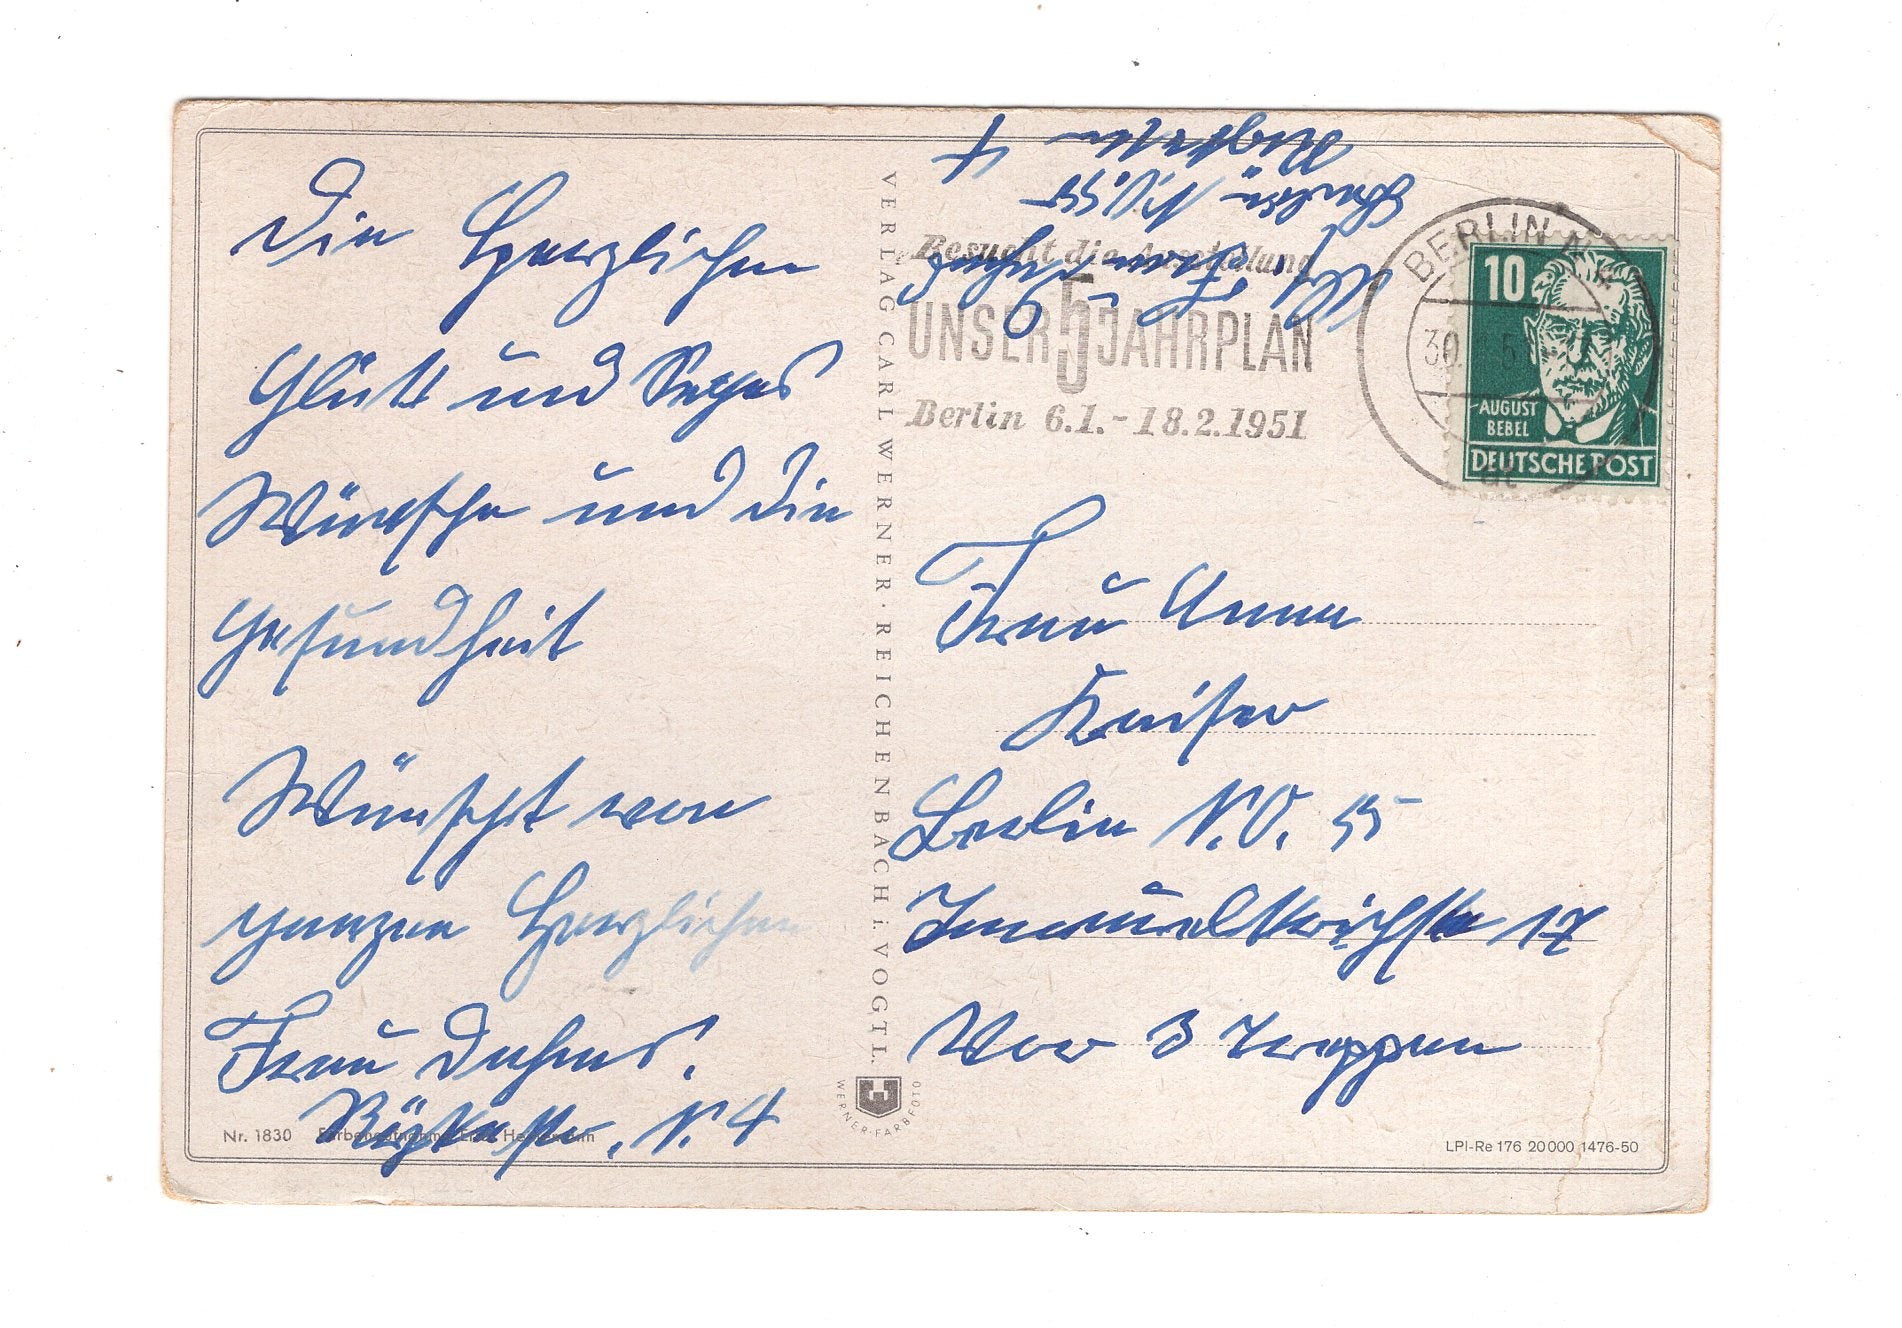 Die Herzlichen
Glück und Segens
Wünsche und die
Gesundheit
Wünscht von
ganzen Herzlichen
Frau Dahms.
N. 4
Nr. 1830
VERLAG CARL WERNER · REICHENBACH i. VOGTL.
WERNER-FARBFOTO
Besucht die Ausstellung
UNSER 5 JAHRPLAN
Berlin 6.1.-18.2.1951
BERLIN N 4
30. 51
at
10
AUGUST
BEBEL
DEUTSCHE POST
Frau Anna
Kaiser
Berlin N.O. 55
Immanuelkirchstr 17
Vor 3 Treppen
LPI-Re 176 20000 1476-50